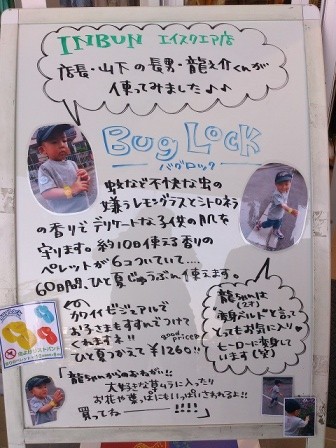 INBUN エイスクエア店
店長・山下の長男・龍之介くんが
使ってみました♪♪
BUG LOCK
バグロック
蚊など不快な虫の
嫌うレモングラスとシトロネラ
の香りでデリケートな子供の肌を
守ります。約10日使える香りの
ペレットが6コついていて....
60日間、ひと夏じゅうぶん使えます。
カワイイビジュアルで
お子さまもすすんでつけて
くれますネ!!
good price♪
ひと夏つかえて ¥1260!!
龍ちゃんは
(2才)
変身ベルトと言って
とってもお気に入り♥
ヒーローに変身して
います(笑)
「龍ちゃんからのおねがい!!
大好きな草ムラに入ったり
お花や葉っぱにもいっぱいさわれるよ!!
買ってね——!!!!」